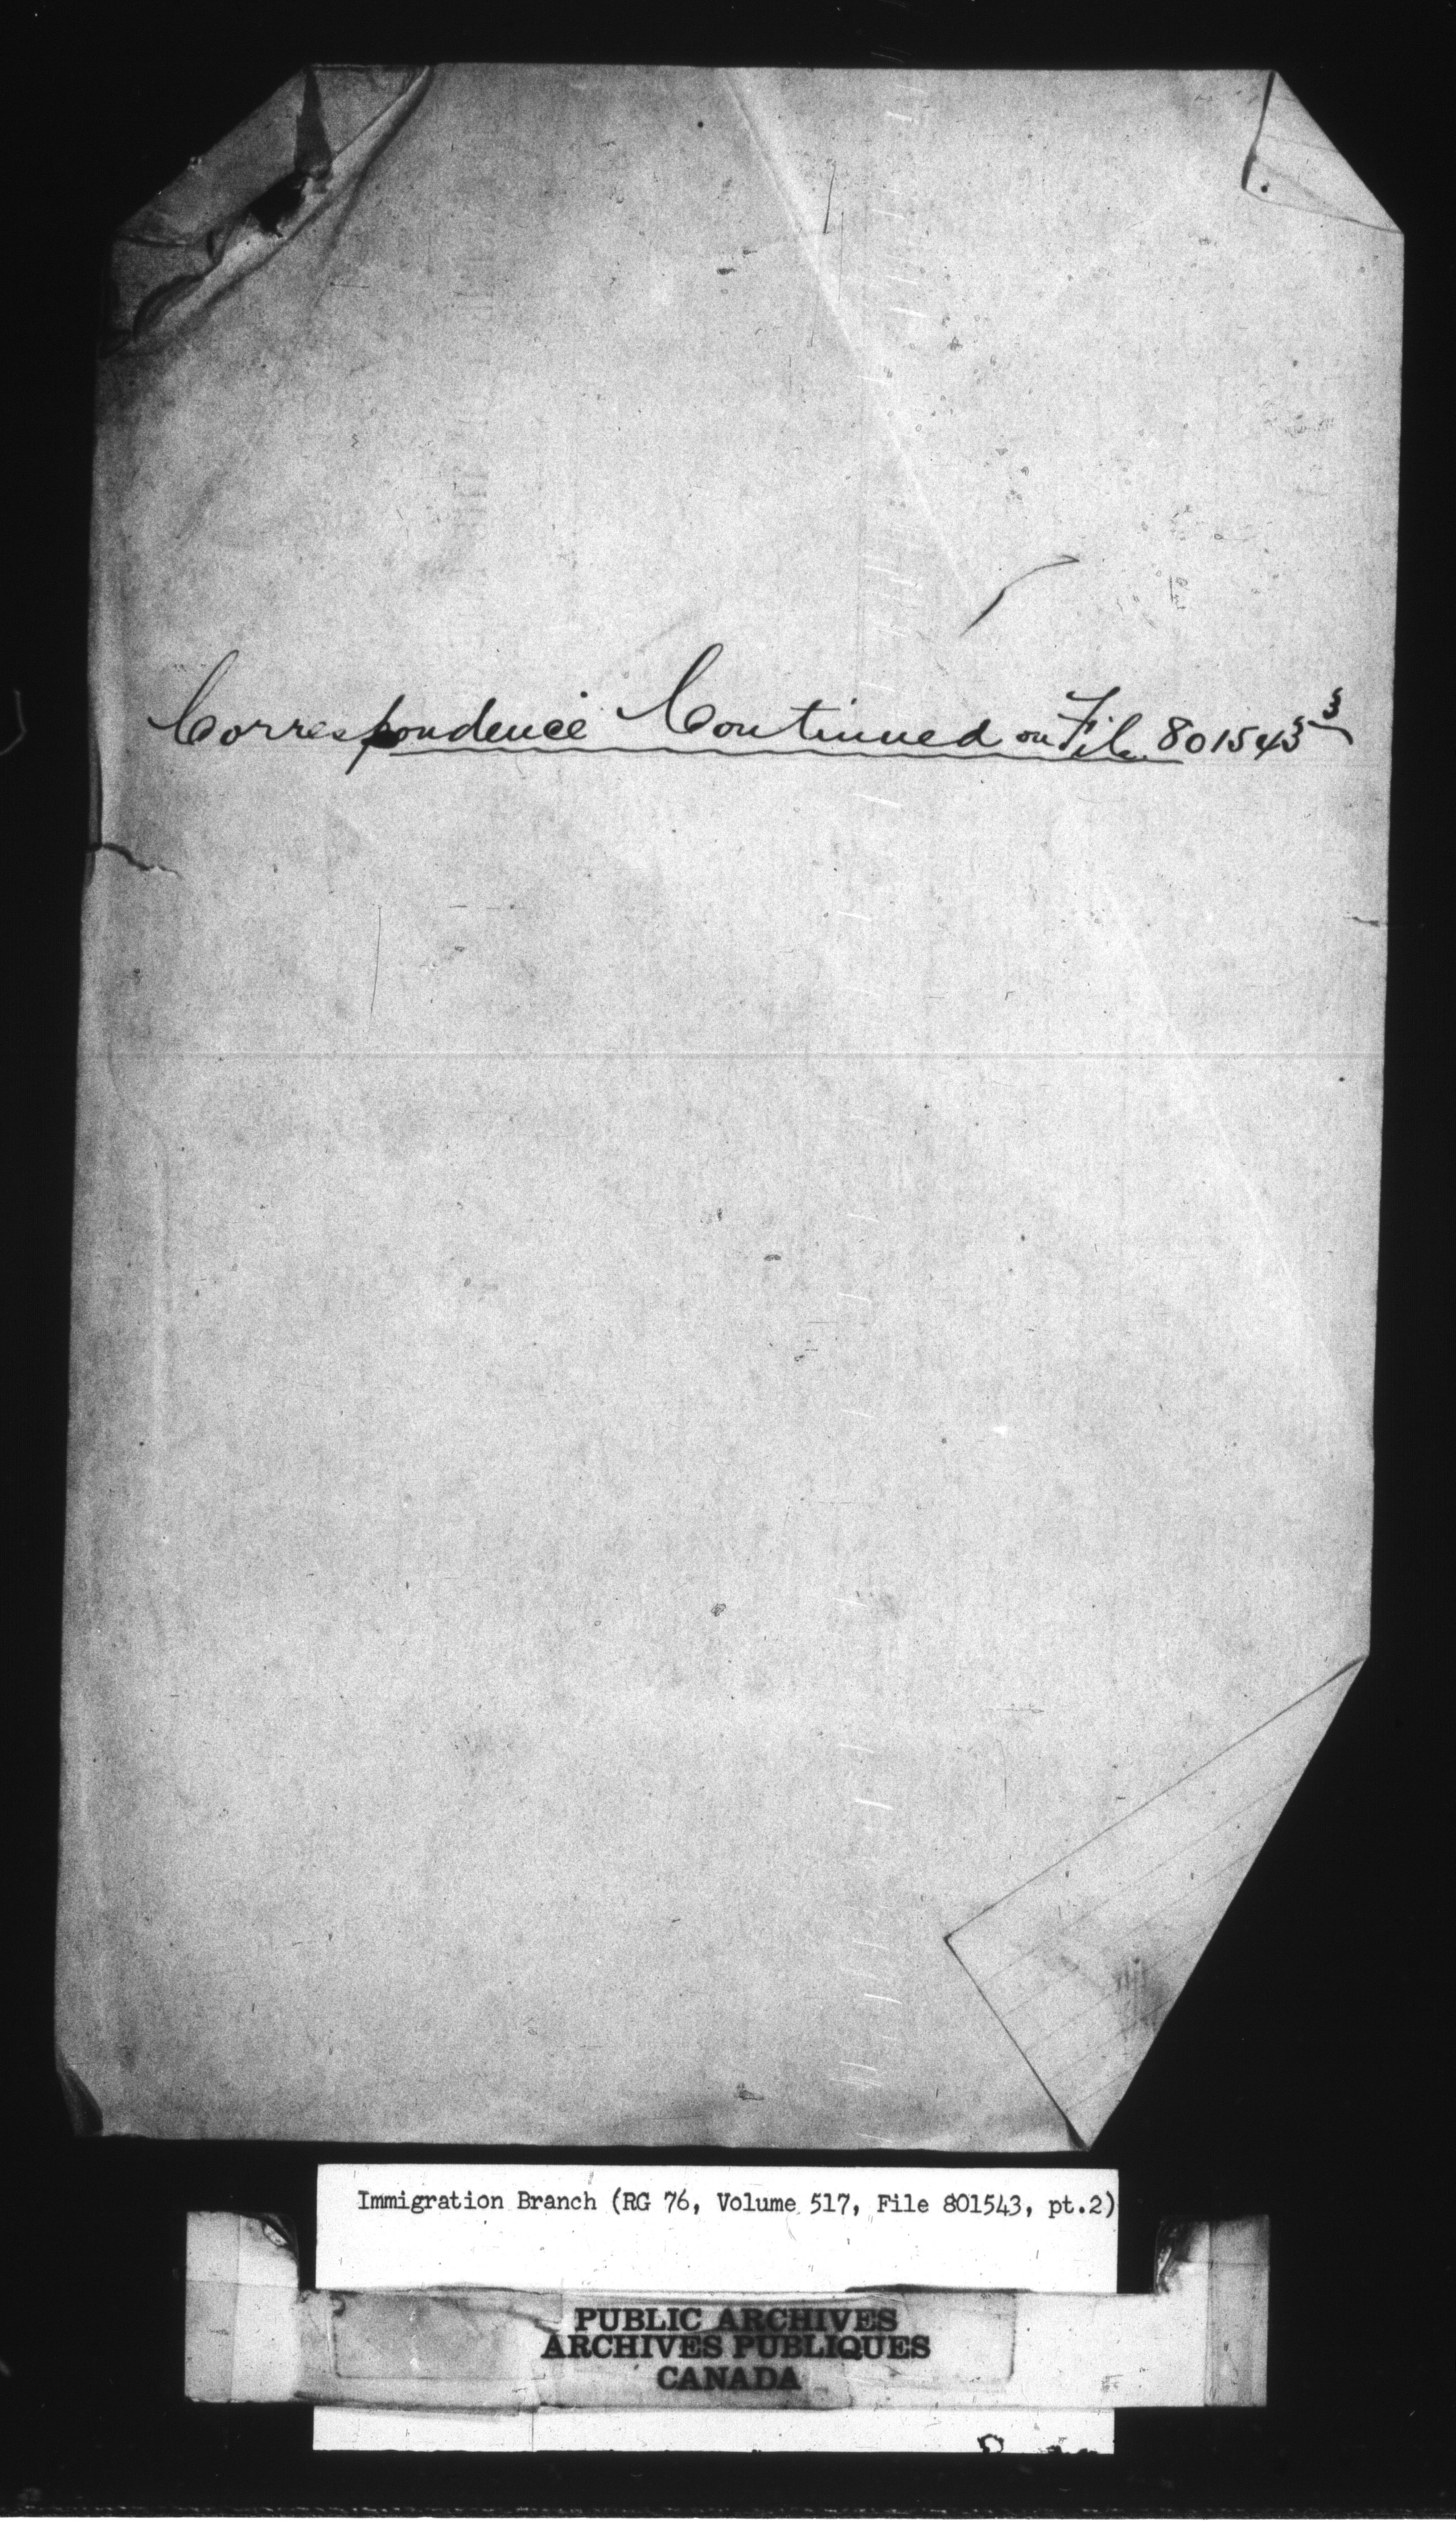 Correspondence Continued on File 801543 3
Immigration Branch (RG 76, Volume 517, File 801543, pt.2)
PUBLIC ARCHIVES
ARCHIVES PUBLIQUES
CANADA